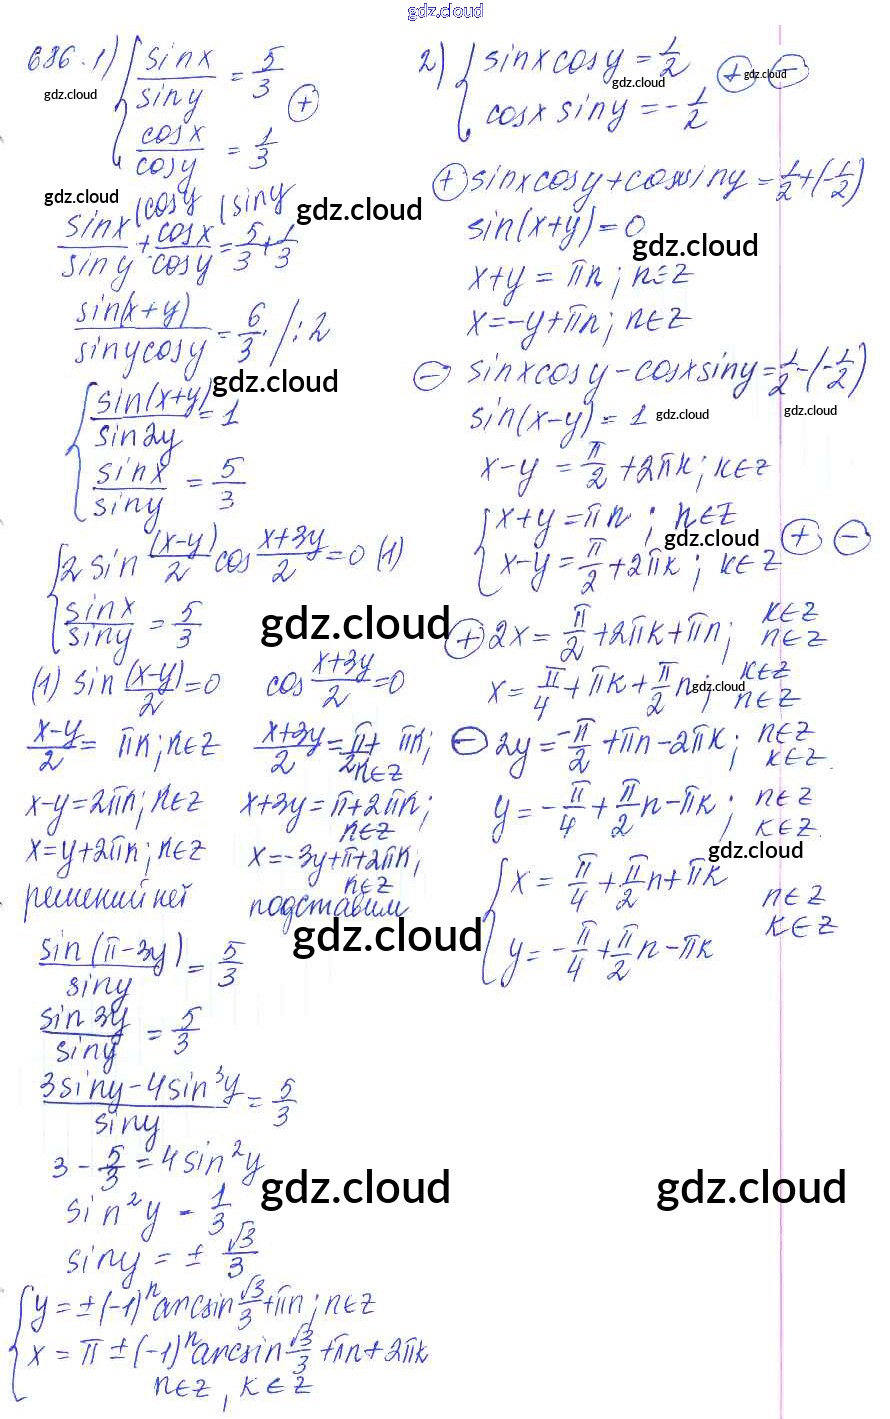 gdz.cloud
686. 1) { sinx/siny = 5/3
cosx/cosy = 1/3 (+)
gdz.cloud
sinx(cosy/siny + cosx(siny/cosy = 5/3 + 1/3
gdz.cloud
gdz.cloud
sin(x+y)/sinycosy = 6/3 /:2
{ sin(x+y)/sin2y = 1
gdz.cloud
sinx/siny = 5/3
{ 2 sin (x-y)/2 cos (x+3y)/2 = 0 (1)
sinx/siny = 5/3
gdz.cloud
(1) sin (x-y)/2 = 0 cos (x+3y)/2 = 0
(x-y)/2 = πn; n∈Z (x+3y)/2 = π/2 + πn; n∈Z
x-y = 2πn; n∈Z x+3y = π+2πn; n∈Z
x = y+2πn; n∈Z x = -3y+π+2πn; n∈Z
решений нет подставим
gdz.cloud
sin(π-3y)/siny = 5/3
sin3y/siny = 5/3
(3siny-4sin³y)/siny = 5/3
3 - 5/3 = 4sin²y
gdz.cloud
sin²y = 1/3
siny = ± √3/3
{ y = ±(-1)ⁿ arcsin √3/3 + πn; n∈Z
x = π ± (-1)ⁿ arcsin √3/3 + πn + 2πk
n∈Z, k∈Z
2) { sinxcosy = 1/2
gdz.cloud
cosxsiny = -1/2 (+) (-)
gdz.cloud
(+) sinxcosy + cosxsiny = 1/2 + (-1/2)
sin(x+y) = 0
gdz.cloud
x+y = πn; n∈Z
x = -y+πn; n∈Z
(-) sinxcosy - cosxsiny = 1/2 - (-1/2)
sin(x-y) = 1
gdz.cloud
gdz.cloud
x-y = π/2 + 2πk; k∈Z
{ x+y = πn; n∈Z
gdz.cloud
x-y = π/2 + 2πk; k∈Z (+) (-)
(+) 2x = π/2 + 2πk + πn; k∈Z n∈Z
x = π/4 + πk + π/2 n; k∈Z n∈Z
gdz.cloud
(-) 2y = -π/2 + πn - 2πk; n∈Z k∈Z
y = -π/4 + π/2 n - πk; n∈Z k∈Z
gdz.cloud
{ x = π/4 + π/2 n + πk
y = -π/4 + π/2 n - πk n∈Z k∈Z
gdz.cloud